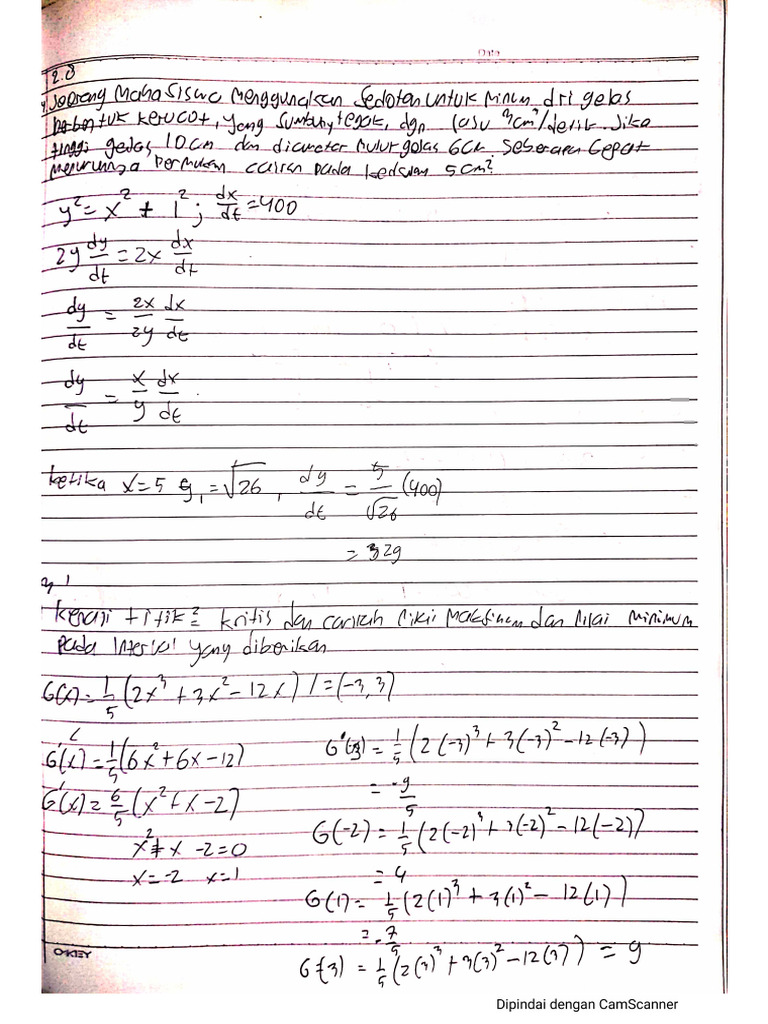 Date
2.8
4. Seorang Mahasiswa Menggunakan Sedotan untuk Minum dri gelas
berbentuk kerucot, yang sumbuny tegak, dgn lasu 3cm³/detik. Jika
tinggi gelas 10cm dan diameter mulut gelas 6cm. Seberapa Cepat
menurunnya permukaan cairan pada kedalam 5cm?
y² = x² + 1² ; dx/dt = 400
2y dy/dt = 2x dx/dt
dy/dt = 2x/2y dx/dt
dy/dt = x/y dx/dt
ketika x=5 y = √26, dy/dt = 5/√26 (400)
= 329
3.1
titik² kritis dan carilah nilai Maksimum dan nilai minimum
pada Interval yang diberikan
G(x) = 1/5 (2x³ + 3x² - 12x) I = (-3,3)
G'(x) = 1/5 (6x² + 6x - 12)
G'(x) = 6/5 (x² + x - 2)
x² + x - 2 = 0
x = -2 x = 1
G(-3) = 1/5 (2(-3)³ + 3(-3)² - 12(-3))
= 9/5
G(-2) = 1/5 (2(-2)³ + 3(-2)² - 12(-2))
= 4
G(1) = 1/5 (2(1)³ + 3(1)² - 12(1))
= -7/5
G(3) = 1/5 (2(3)³ + 3(3)² - 12(3)) = 9
OKEY
Dipindai dengan CamScanner